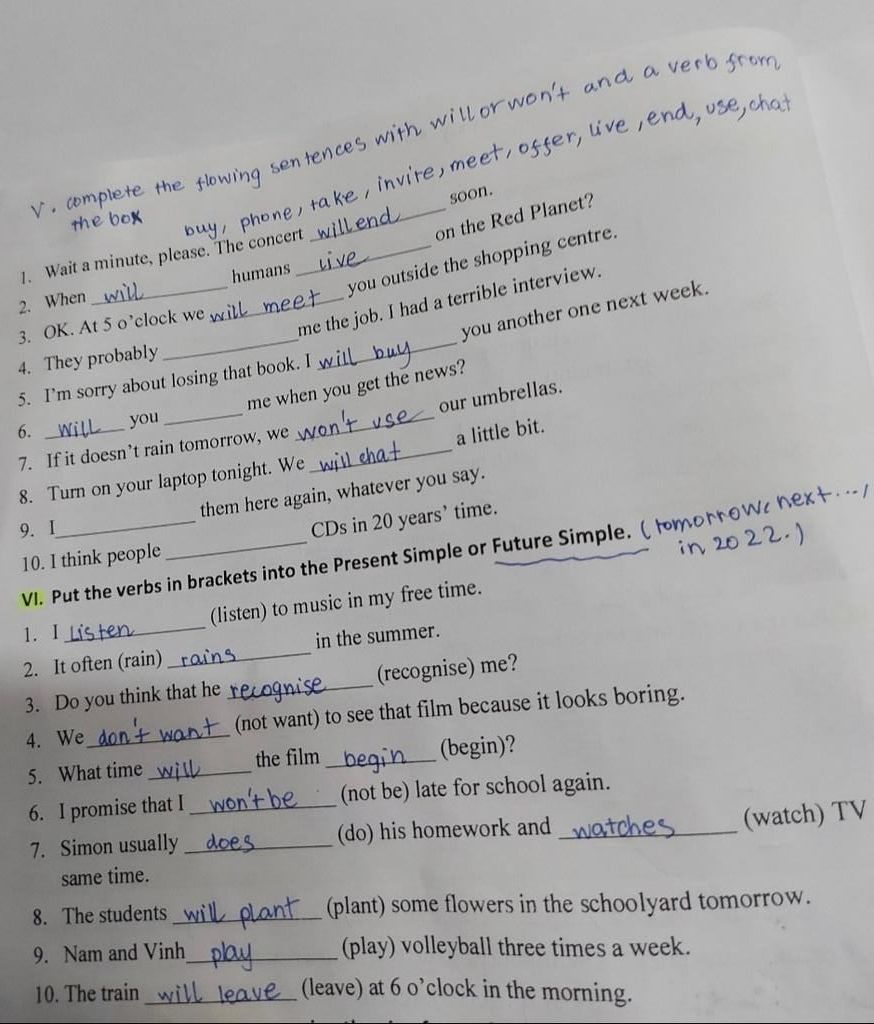 V. complete the flowing sentences with will or won't and a verb from
the box
buy, phone, take, invite, meet, offer, live, end, use, chat
1. Wait a minute, please. The concert will end soon.
2. When will humans live on the Red Planet?
3. OK. At 5 o'clock we will meet you outside the shopping centre.
4. They probably ________ me the job. I had a terrible interview.
5. I'm sorry about losing that book. I will buy you another one next week.
6. will you ________ me when you get the news?
7. If it doesn't rain tomorrow, we won't use our umbrellas.
8. Turn on your laptop tonight. We will chat a little bit.
9. I ________ them here again, whatever you say.
10. I think people ________ CDs in 20 years' time.
VI. Put the verbs in brackets into the Present Simple or Future Simple. (tomorrow, next..., 
in 2022.)
1. I Listen (listen) to music in my free time.
2. It often (rain) rains in the summer.
3. Do you think that he recognise (recognise) me?
4. We don't want (not want) to see that film because it looks boring.
5. What time will the film begin (begin)?
6. I promise that I won't be (not be) late for school again.
7. Simon usually does (do) his homework and watches (watch) TV
same time.
8. The students will plant (plant) some flowers in the schoolyard tomorrow.
9. Nam and Vinh play (play) volleyball three times a week.
10. The train will leave (leave) at 6 o'clock in the morning.